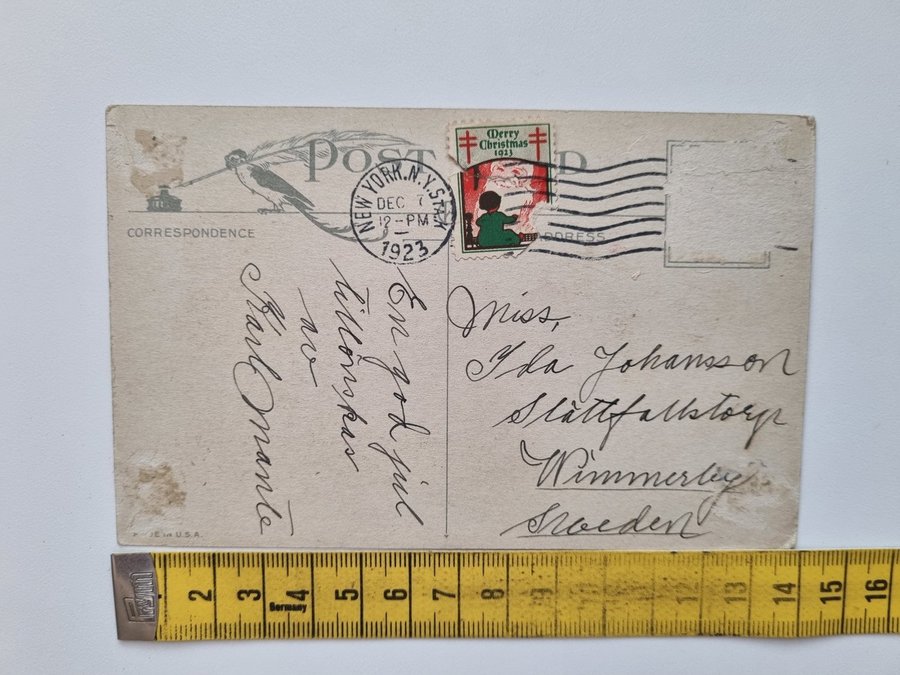 POST
CORRESPONDENCE
ADDRESS
NEW YORK, N.Y. STA
DEC
12-PM
1923
Merry
Christmas
1923
En god jul
tillönskas
av
Karl
Miss,
Ida Johansson
Slättfallstorp
Wimmerby
Sweden
E IN U.S.A.
2 3 4 5 6 7 8 9 12 13 14 15 16
Germany